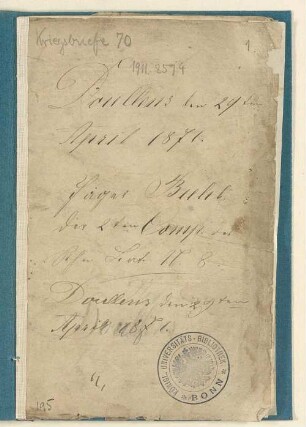 Kriegsbriefe 70
1
1911. 857,9
Doullens den 29ten
April 1871.
Jäger
der 2ten Comp.
No 8
Doullens den 29ten
April 1871.
195
KÖNIGL. UNIVERSITÄTS-BIBLIOTHEK
BONN